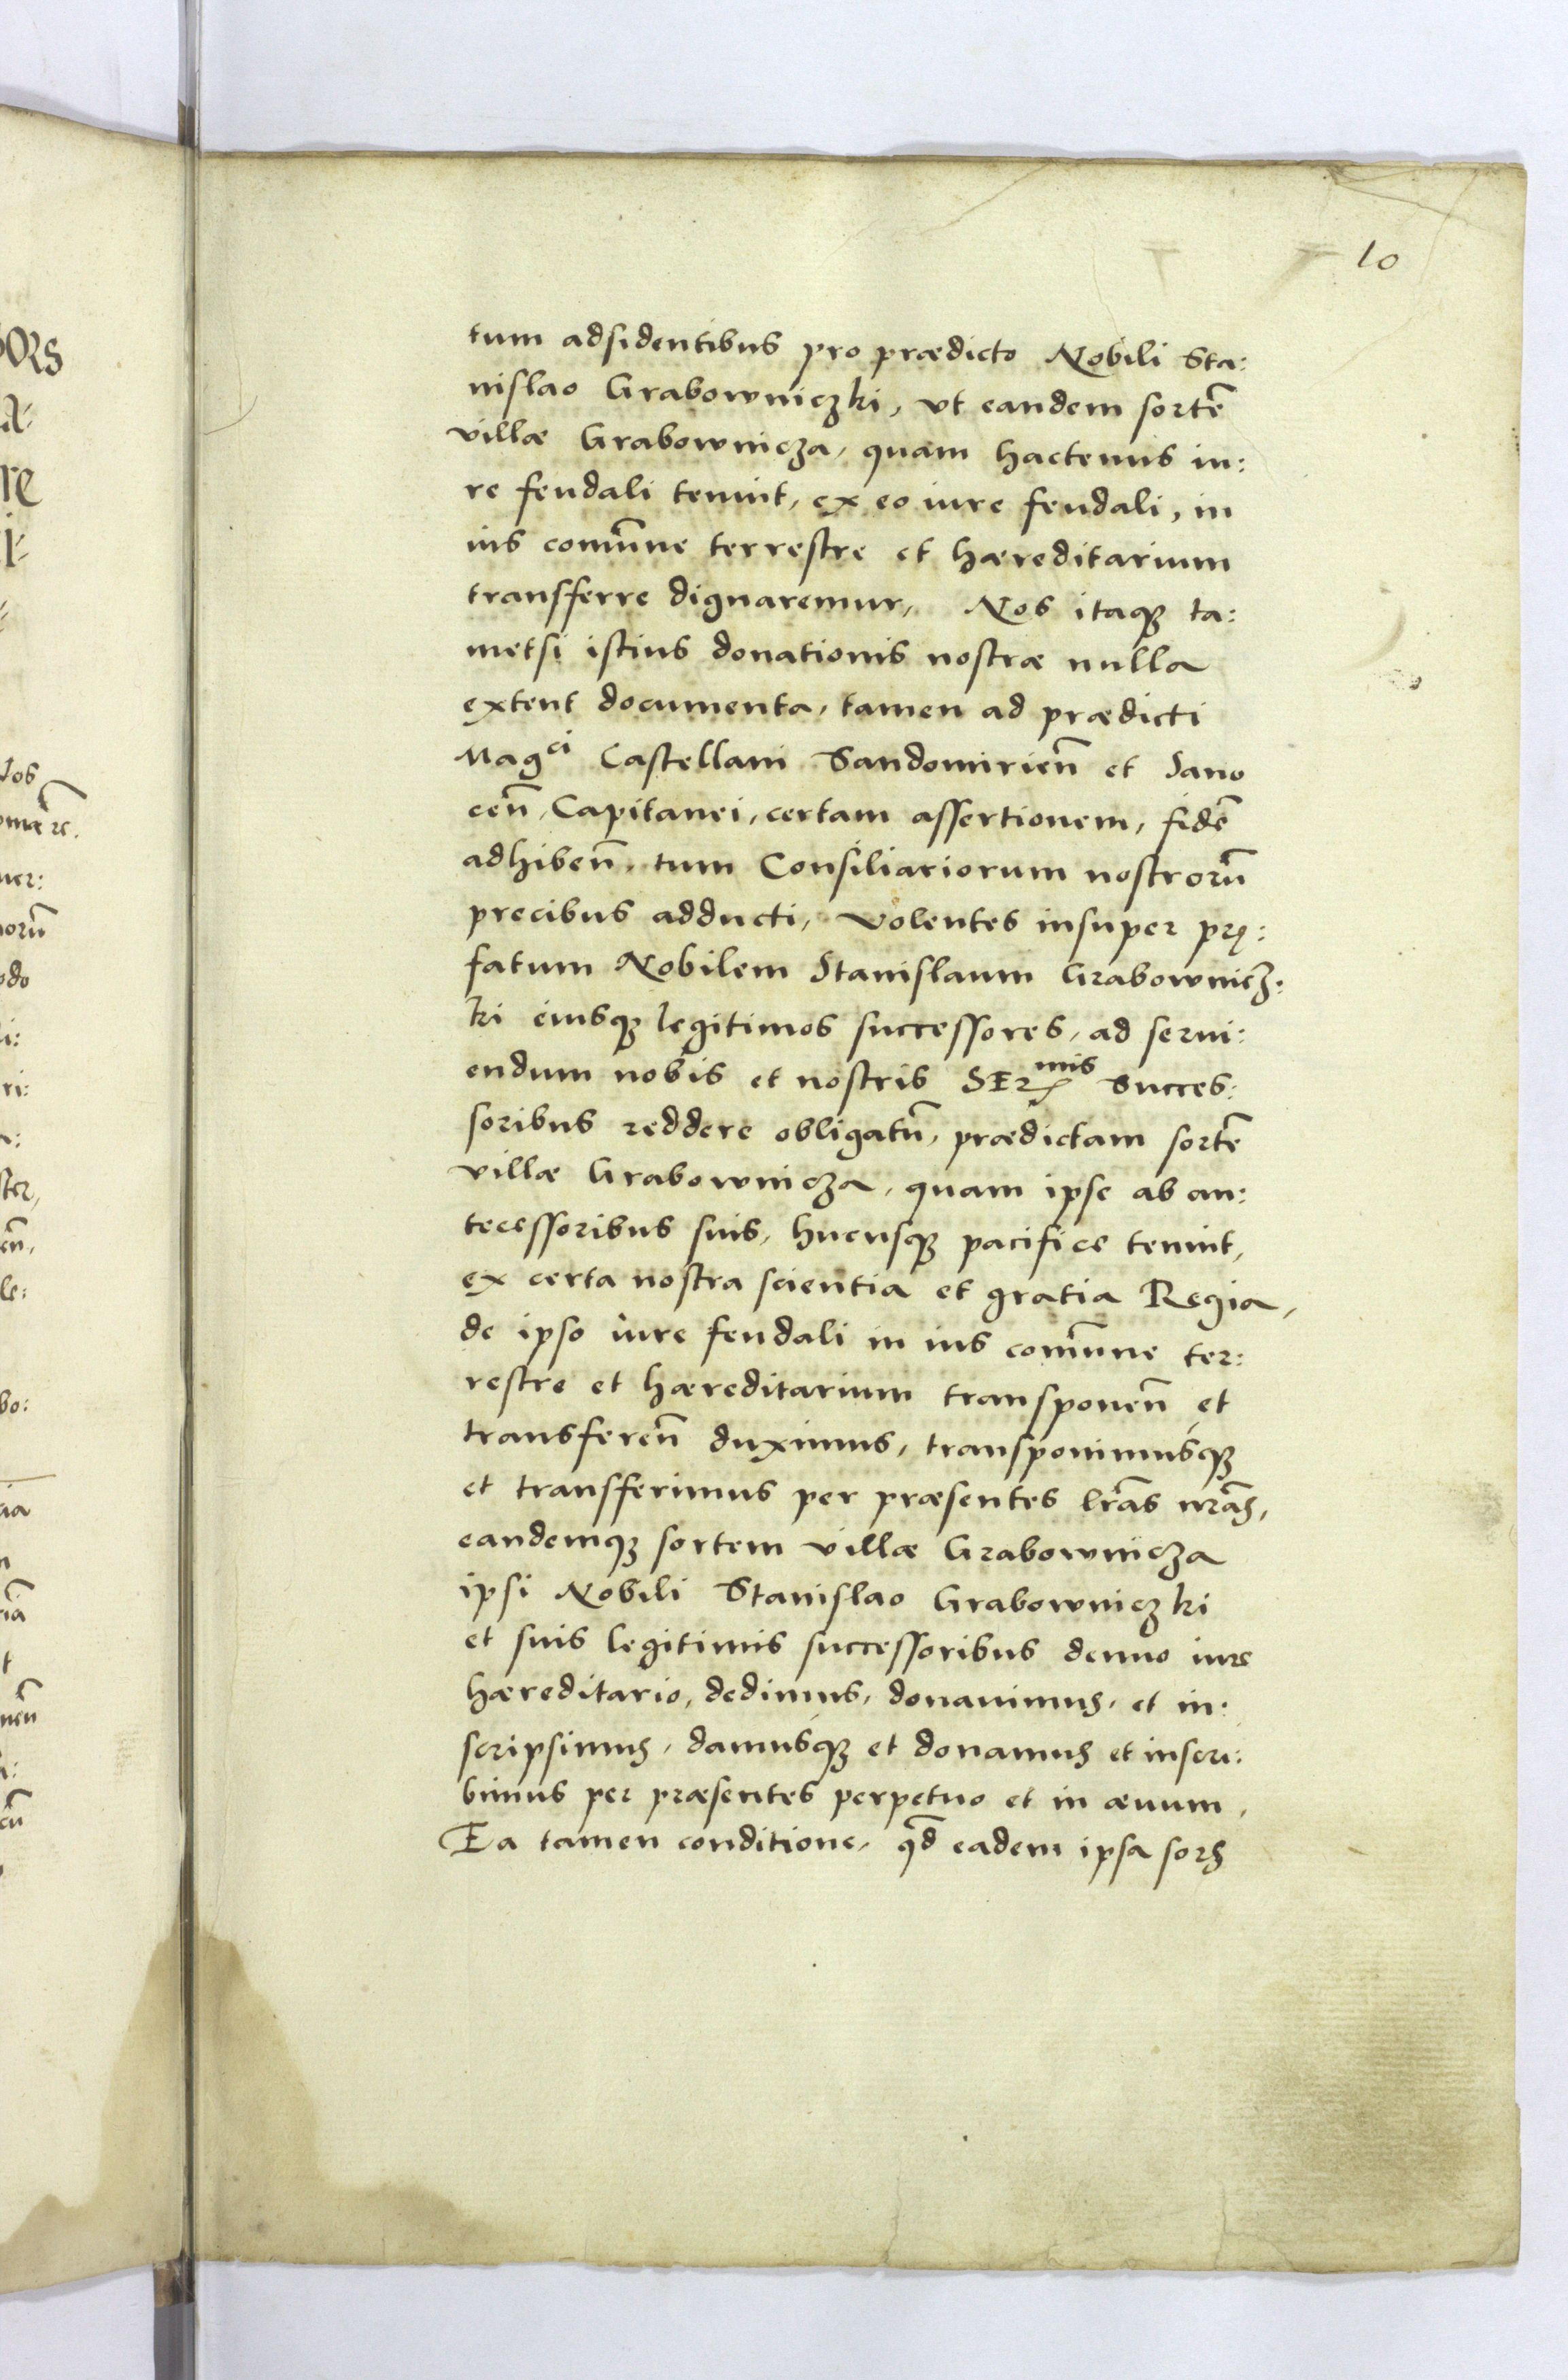 10
tum adsidentibus pro prædicto Nobili Sta:
nislao Grabowniczki, vt eandem sortē
villæ Grabownicza, quam hactenus iu:
re feudali tenuit, ex eo iure feudali, in
ius comūne terrestre et hæreditarium
transferre dignaremur, Nos itaqꝫ ta:
metsi istius donationis nostræ nulla
extent documenta, tamen ad prædicti
Magci Castellani Sandomirieñ et Sano
ceñ, Capitanei, certam assertionem, fidē
adhibeñ, tum Consiliariorum nostrorū
precibus adducti, volentes insuper prę:
fatum Nobilem Stanislaum Grabownicz:
ki eiusqꝫ legitimos successores, ad serui:
endum nobis et nostris SERmis Succes:
soribus reddere obligatū, prædictam sortē
villæ Grabownicza, quam ipse ab an:
tecessoribus suis, hucusqꝫ pacifice tenuit,
ex certa nostra scientia et gratia Regia,
de ipso iure feudali in ius comūne ter:
restre et hæreditarium transponeñ et
transfereñ duximus, transponimusqꝫ
et transferimus per præsentes lr̃as nr̃as,
eandemqꝫ sortem villæ Grabownicza
ipsi Nobili Stanislao Grabowniczki
et suis legitimis successoribus denuo iure
hæreditario, dedimus, donauimus, et in:
scripsimus, damusqꝫ et donamus et inscri:
bimus per præsentes perpetuo et in æuum,
Ea tamen conditione, qd̄ eadem ipsa sors